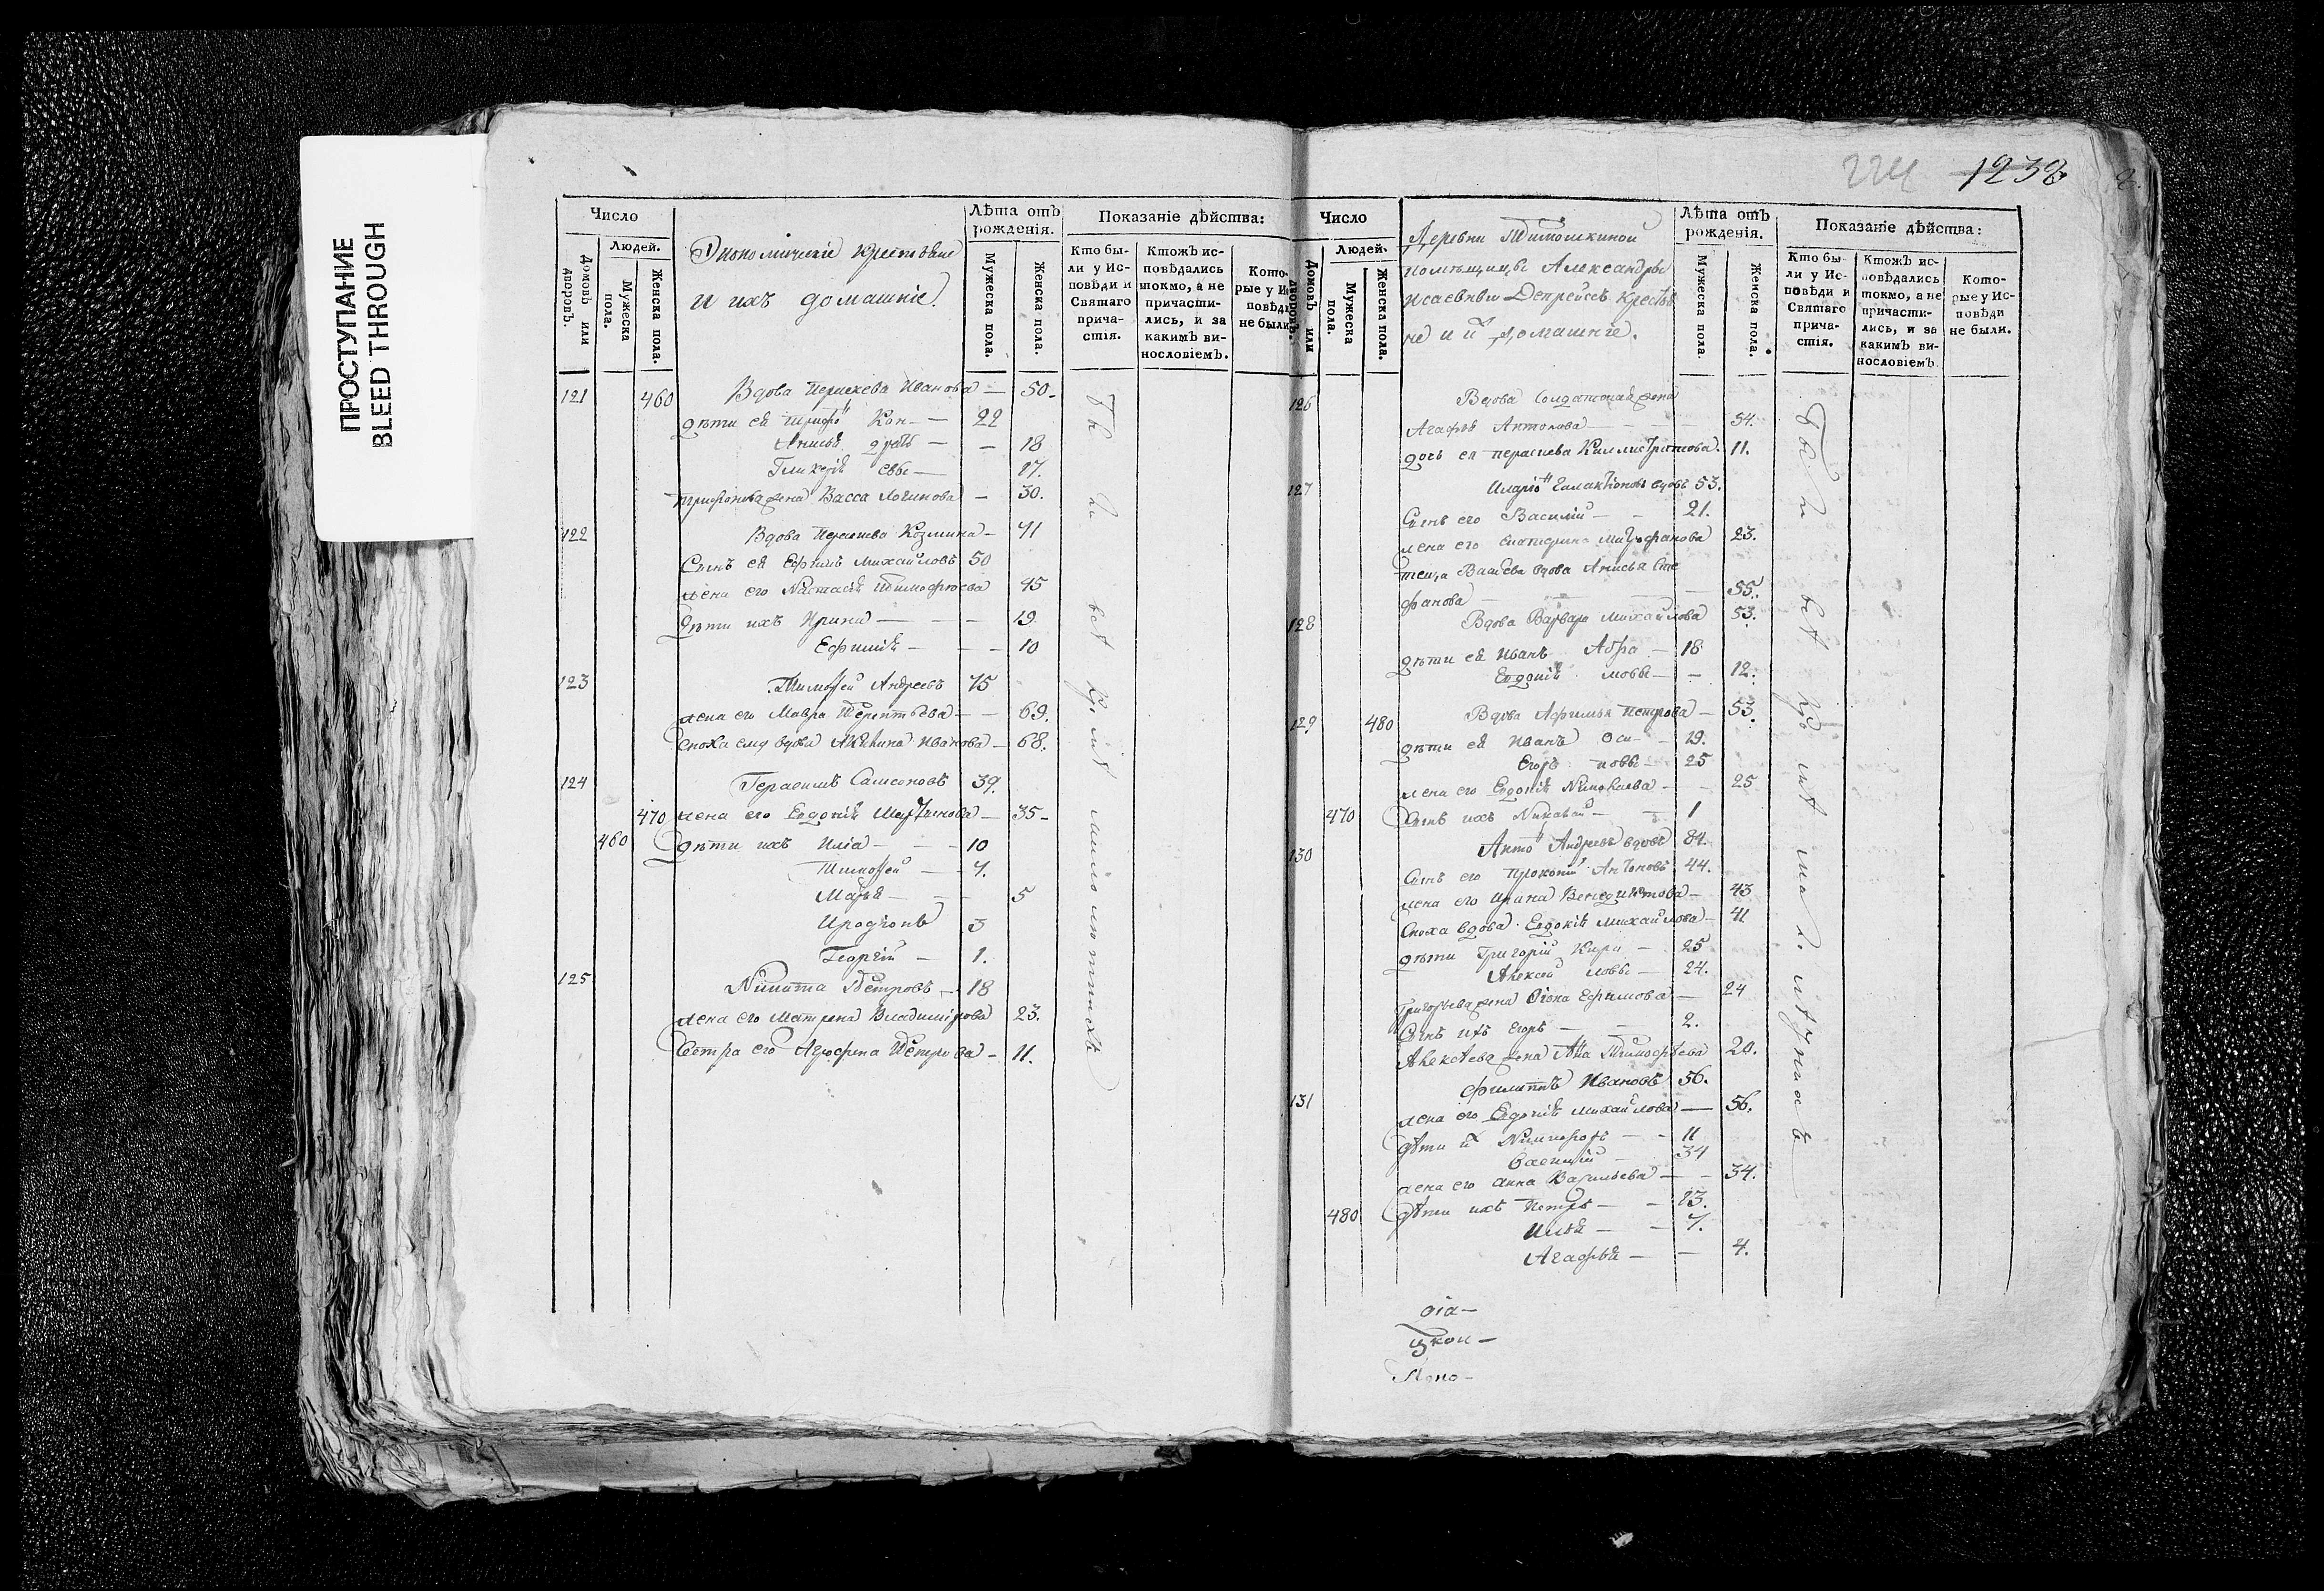 ПРОСТУПАНИЕ
BLEED THROUGH
Число
Людей.
Домовъ или дворовъ.
Мужеска пола.
Женска пола.
Экономическіе крестьяне
и ихъ домашніе
Лѣта отъ рожденія.
Мужеска пола.
Женска пола.
Показаніе дѣйства:
Кто были у Исповѣди и Святаго причастія.
Ктожъ исповѣдались токмо, а не причастились, и за какимъ винословіемъ.
Которые у Исповѣди не были.
121 460 Вдова Ивановa — 50.
дѣти ея Трифо Кон — 22
Анисья — 18
Гликерія — 17.
Трифонова жена Васса Логинова — 30.
122 Вдова Козмина — 71
Сынъ ея Ефимъ Михайловъ 50
жена его Настасія Тимофѣева 45
дѣти ихъ Ирина — 19
Ефимія — 10
123 Тимофей Андреевъ 75
жена его Мавра Терентьева — 69.
сноха ему вдова Акилина Иванова — 68.
124 Герасимъ Самсоновъ 39.
470 жена его Евдокія Мартинова — 35
460 дѣти ихъ Иліа — 10
Тимофей — 7.
Марья — 5
Иродіонъ 3
Георгій — 1.
125 Никита Петровъ — 18
жена его Матрена Владимірова 23.
Сестра его Агрофена Петрова — 11.
224 1232
Число
Людей.
Домовъ или дворовъ.
Мужеска пола.
Женска пола.
Деревни
помѣщицы Александры
Исаевны крестья
не и их домашніе.
Лѣта отъ рожденія.
Мужеска пола.
Женска пола.
Показаніе дѣйства:
Кто были у Исповѣди и Святаго причастія.
Ктожъ исповѣдались токмо, а не причастились, и за какимъ винословіемъ.
Которые у Исповѣди не были.
126 Вдова Солдатская жена
Агафья Антонова — 54.
дочь ея Каллистратова. 11.
127 Иларіо Галактіоновъ вдовъ 53.
Сынъ его Василій — 21.
жена его Екатерина Митрофанова 23.
теща Васильева вдова Анисья Сте
фанова — 55.
128 Вдова Варвара Михайлова 53.
дѣти ея Иванъ Абра — 18
Евдокія мовы — 12.
129 480 Вдова Афимья Петрова — 53.
дѣти ея Иванъ Оси — 19.
Егоръ повы — 25
жена его Евдокія Николаева — 25
470 Сынъ ихъ Николай — 1
130 Анто Андреевъ вдовъ 84.
Сынъ его Прокопій Антоновъ 44.
жена его Ирина Венедиктова — 43
Сноха вдова Евдокія Михайлова — 41
дѣти Григорій Кири — 25
Алексей ловы — 24.
Григорьева жена Ефимова — 24
Сынъ ихъ Егоръ — 2.
Алексѣева жена Анна Тимофѣева 20.
131 Филиппъ Ивановъ 56.
жена его Евдокія Михайлова — 56.
дѣти их Никифоръ — 11
Василій — 34
жена его Анна Васильева — 34.
480 дѣти ихъ Петръ — 13.
Илья — 7.
Агафья — 4.